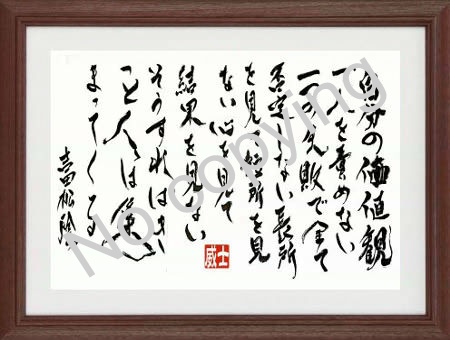 自分の価値観
で人を責めない
一つの失敗で全て
否定しない長所
を見て短所を見
ない心を見て
結果を見ない
そうすればきっ
と人は集
まってくる
吉田松陰
威士
No copying